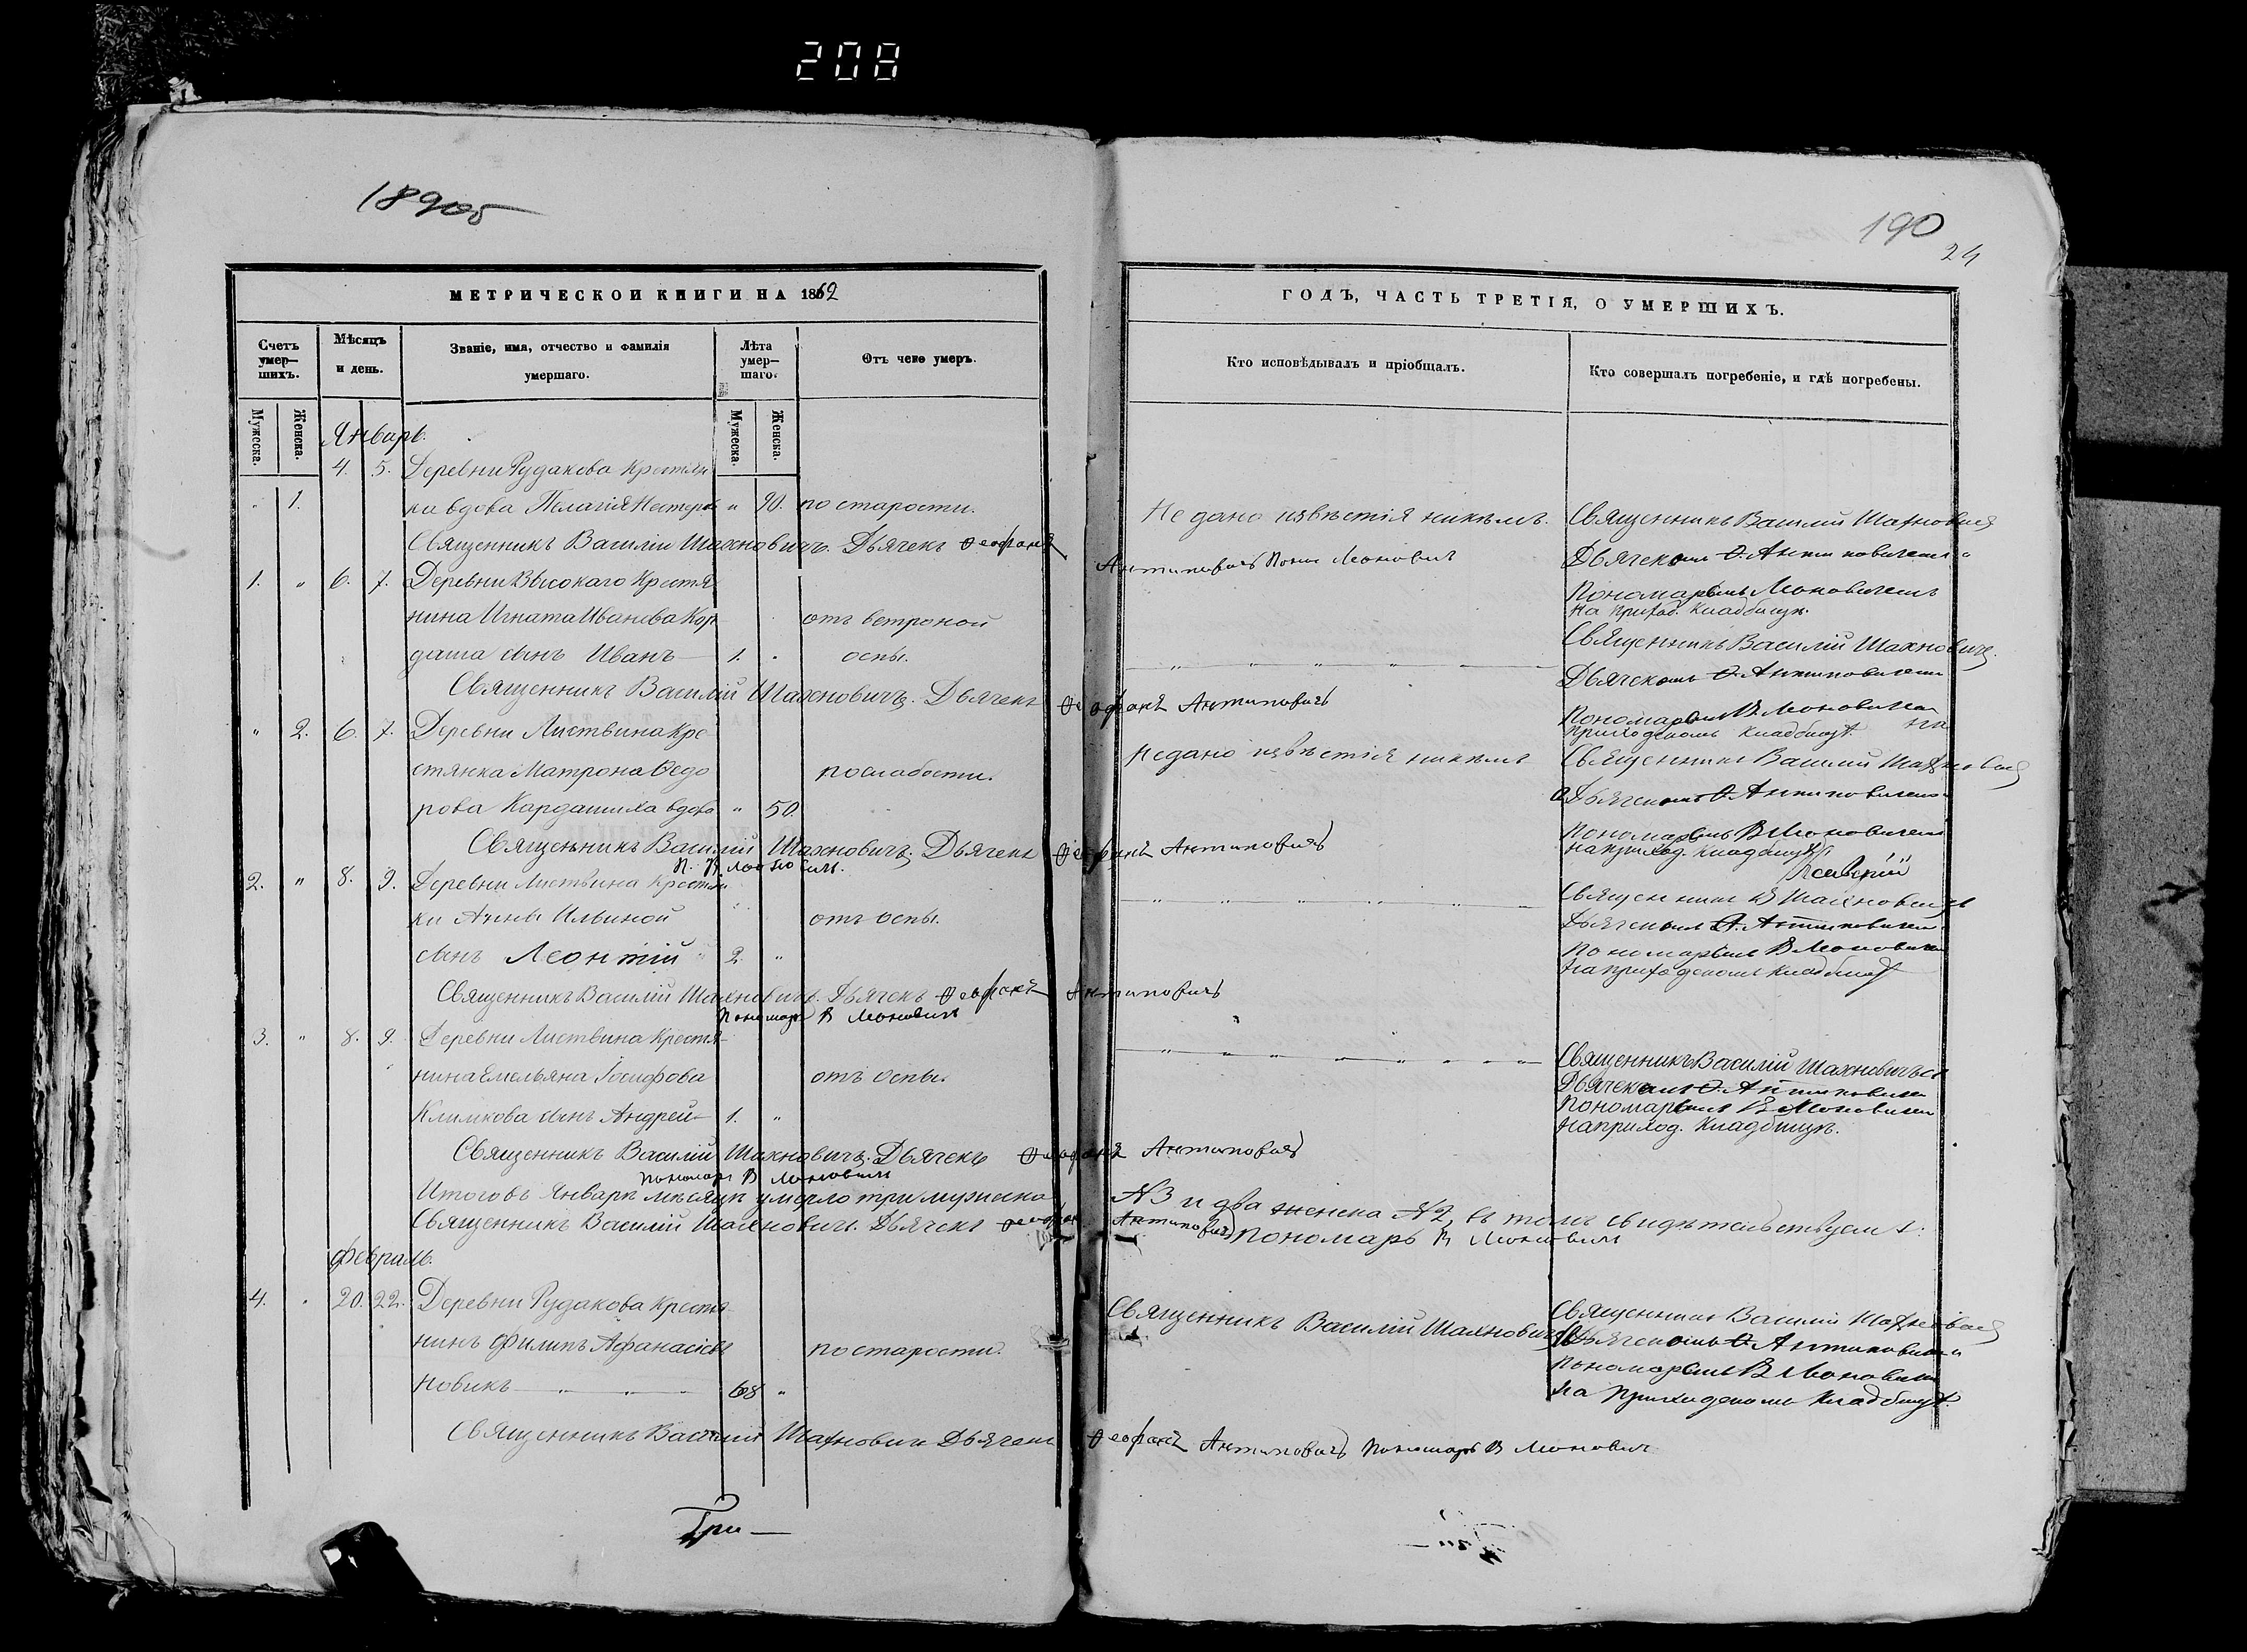 208
189об
190
24
МЕТРИЧЕСКОЙ КНИГИ НА 1862
ГОДЪ, ЧАСТЬ ТРЕТІЯ, О УМЕРШИХЪ.
Счетъ умер—шихъ.
Мѣсяцъ и день.
Званіе, имя, отчество и фамилія умершаго.
Лѣта умер—шаго.
Отъ чего умеръ.
Кто исповѣдывалъ и пріобщалъ.
Кто совершалъ погребеніе, и гдѣ погребены.
Мужеска.
Женска.
Мужеска.
Женска.
Январь.
4. 5. Деревни Рудакова Крестьян
" 1. ка вдова Пелагія Нестеро " 90. по старости.
Не дано извѣстія никѣмъ.
Священникъ Василій Шахновичъ. Дьячекъ Ѳеофанъ
Антиповичъ Поном Моновичъ
Священникъ Василій Шахновичъ
Дьячкомъ Ѳ. Антиповичемъ и
Пономаремъ Моновичемъ
на приход. Кладбищѣ.
1. " 6. 7. Деревни Высокаго Крестья
нина Игната Иванова Кор
отъ ветряной
даша сынъ Иванъ 1. " оспы.
Священникъ Василій Шахновичъ. Дьячекъ Ѳеофанъ Антиповичъ
Священникъ Василій Шахновичъ
Дьячкомъ Ѳ Антиповичемъ
Пономаремъ В Моновичемъ на
приходскомъ кладбищѣ.
" 2. 6. 7. Деревни Листвина Кре
стянка Матрона Ѳедо
по слабости.
рова Кардашиха вдова " 50.
Не дано извѣстія никѣмъ
Священникъ Василій Шахновичъ. Дьячекъ Ѳеофанъ Антиповичъ
Священникъ Василій Шахновичъ
Дьячкомъ Ѳ Антиповичемъ
Пономаремъ В Моновичемъ
на приход. кладбищѣ
2. " 8. 9. Деревни Листвина Крестьян
ки Анны Ильиной отъ оспы.
сынъ Леонтій 2. "
Священникъ В Шахновичъ
Дьячкомъ Ѳ. Антиповичемъ
Пономаремъ В Моновичемъ
на приходскомъ кладбищѣ
Священникъ Василій Шахновичъ. Дьячекъ Ѳеофанъ Антиповичъ
Пономарь В Моновичъ
3. " 8. 9. Деревни Листвина Крестья
нина Емельяна Іосифова отъ оспы.
Климкова сынъ Андрей 1. "
Священникъ Василій Шахновичъ съ
Дьячкомъ Ѳ. Антиповичемъ
Пономаремъ В Моновичемъ
на приход. Кладбищѣ.
Священникъ Василій Шахновичъ. Дьячекъ Ѳеофанъ Антиповичъ
Пономарь В Моновичъ
Итого въ Январѣ мѣсяцѣ умерло три мужеска №3 и два женска №2, въ томъ свидѣтельствуемъ:
Священникъ Василій Шахновичъ. Дьячекъ Ѳеофанъ Антиповичъ Пономарь В Моновичъ
Февраль.
4. " 20. 22. Деревни Рудакова Крестья
нинъ Филипъ Афанасіевъ по старости.
Новикъ 68 "
Священникъ Василій Шахновичъ
Священникъ Василій Шахновичъ
Дьячкомъ Ѳ Антиповичемъ и
Пономаремъ В Моновичемъ
на приходскомъ кладбищѣ.
Священникъ Василій Шахновичъ Дьячекъ Ѳеофанъ Антиповичъ Пономарь В Моновичъ
Три